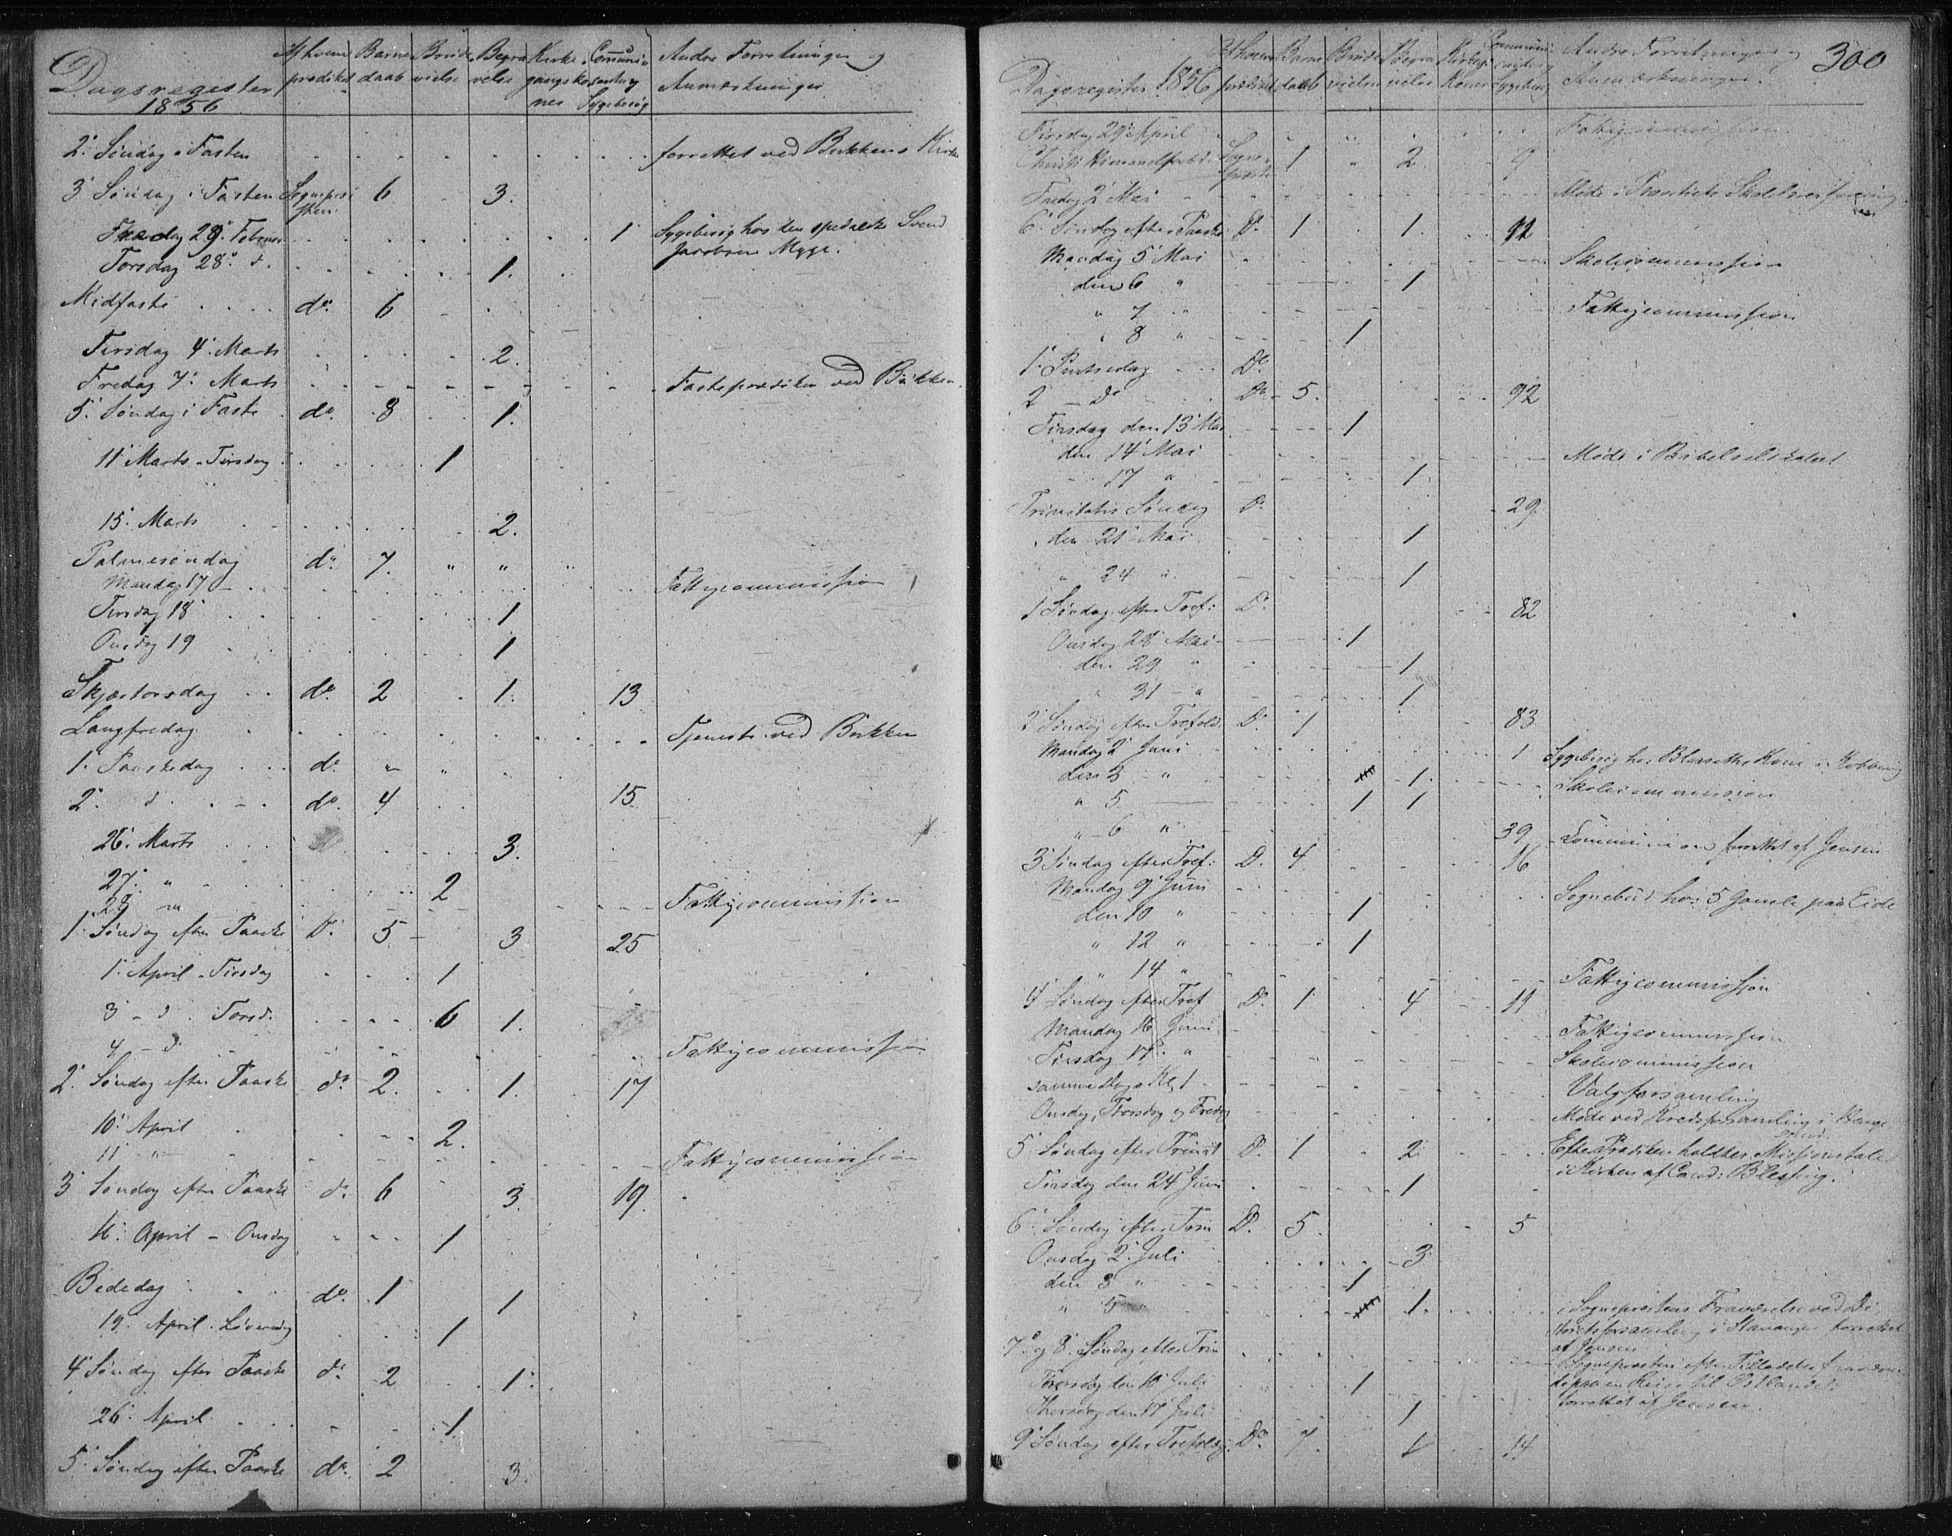 Dagsregister
1856
Af hvem prædiket
Barnedaab
Brudevielse
Begravelse
Kirkegangskoner
Communicanter og Sygebesøg
Andre Forretninger og Anmærkninger
2' Søndag i Fasten forrettet ved Bakkens Kirke
3' Søndag i Fasten Sognepresten 6 3.
Tirsdag Februar 1 Sygebesøg hos den spedalske Svend
Jacobsen Myge.
Torsdag 28' d. 1.
Midfaste do. 6
Tirsdag 4' Marts 2.
Fredag 7' Marts Fasteprædiken ved Bakken.
5' Søndag i Faste do. 8 1.
11' Marts - Tirsdag 1
15' Marts 2.
Palmesøndag do. 7. " "
Mandag 17 Fattigcommission
Tirsdag 18' 1
Onsdag 19 1
Skjærtorsdag do. 2 1. 13
Langfredag. Tjeneste ved Bakken
1' Paaskedag do. " "
2' d. do. 4 15
26' Marts 3.
27' " 2
28' " Fattigcommission
1' Søndag efter Paaske Do. 5 3 25
1' April - Tirsdag 1
3 - d. Torsd. 6 1.
4 - d. Fattigcommission
2' Søndag efter Paaske do 2. 1. 17
10' April 2.
11 " Fattigcommission
3' Søndag efter Paaske do 6 3. 19.
16' April - Onsdag 1
Bededag do. 1 1
19' April. Løverdag 1
4' Søndag efter Paaske do 2 1.
26' April. 1.
5' Søndag efter Paaske do. 2 3.
300
Dagsregister 1856
Af hvem prædiket
Barnedaab
Brudevielse
Begravelse
Andre Forretninger og Anmærkninger.
Tirsdag 29' April Fattigcommission
Christi Himmelfartsd. Sognepresten 1 " 2 9
Fredag 2' Mai Møde i
6' Søndag efter Paaske Do 1 1. 92
Mandag 5' Mai Skolecommission
den 6 " 1
" 7 " Fattigcommission
" 8 " 1
1' Pintsedag Do
2 - do Do 5. 92
Tirsdag den 13' Mai 1
den 14' Mai Møde i Bibelselskabet
17 " 1.
Trinitatis Søndag Do 29
den 21' Mai 1
" 24 " 1
1 Søndag efter Tref: Do 82
Onsdag 28' Mai 1
den 29 " 1
" 31 - " 1
2' Søndag efter Trefold. Do 1 83
Mandag 2' Juni 1 Sygebesøg hos Kone i
den 3 " 1. Skolecommission
" 5 1 1
" 6 " 39 Communion forrettet af Jensen
3' Søndag efter Tref: D. 4 16
Mandag 9' Juni Sognebud hos 5 Gamle paa Eide
den 10 " 1
" 12 " 1
" 14 " Fattigcommission
4' Søndag efter Tref D. 1 4 11
Mandag 16 Juni Fattigcommission
Tirsdag 17' " Skolecommission
samme Dag Kl. 1 Valgforsamling
Onsdag, Thorsdag og Fredag Møde ved
5' Søndag efter Trinit D. 1 2 Efter Prædiken holdtes Missionstale
i Kirken af Cand:
Tirsdag den 24' Juni 1
6' Søndag efter Trin D. 5. 5
Onsdag 2' Juli 3.
den 3 " 1
" 5 1. i Sogneprestens Fraværelse ved
i Stavanger forrettet
af Jensen
7' og 8' Søndag efter Trin Sognepresten efter Tilladelse
paa en Reise til
Torsdag den 10' Juli 1 forrettet af Jensen
Thorsdag den 17' Juli 1
9' Søndag efter Trefoldig. Do 7. 14